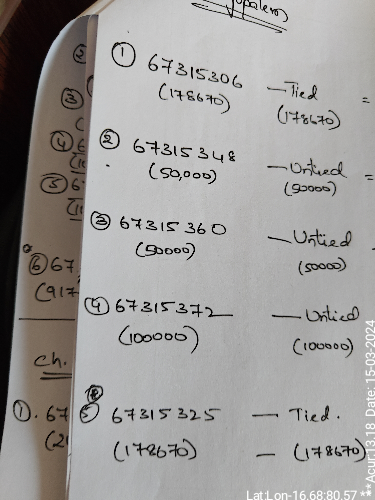 ① 67315306 — Tied =
(178670) (178670)
② 67315348 — Untied =
(50,000) (50000)
③ 67315360 — Untied
(50000) (50000)
④ 67315372 — Untied
(100000) (100000)
⑤ 67315325 — Tied.
(178670) — (178670)
②
③
④ 6
⑤ 6
⑥ 67
(917
ch.
①. 67
(2
Lat Lon-16.68:80.57
**Acur:13.18 Date: 15-03-2024